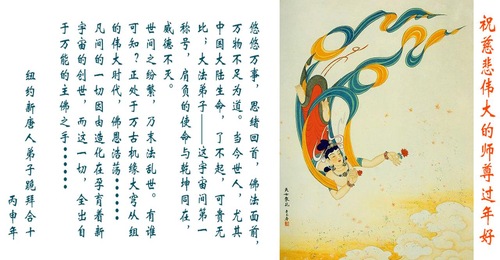 祝慈悲伟大的师尊过年好
天女散花
悠悠万事，思绪回首，佛法面前，
万物不足为道。当今世人，尤其
中国大陆生命，了不起，可贵无
比；大法弟子——这宇宙间第一
称号，肩负的使命与乾坤同在，
威德不灭。
世间之纷繁，乃末法乱世。有谁
可知？正处于万古机缘大穹从组
的伟大时代，佛恩浩荡……
凡间的一切因由造化在孕育着新
宇宙的创世，而这一切，全出自
于万能的主佛之手……
纽约新唐人弟子跪拜合十
丙申年